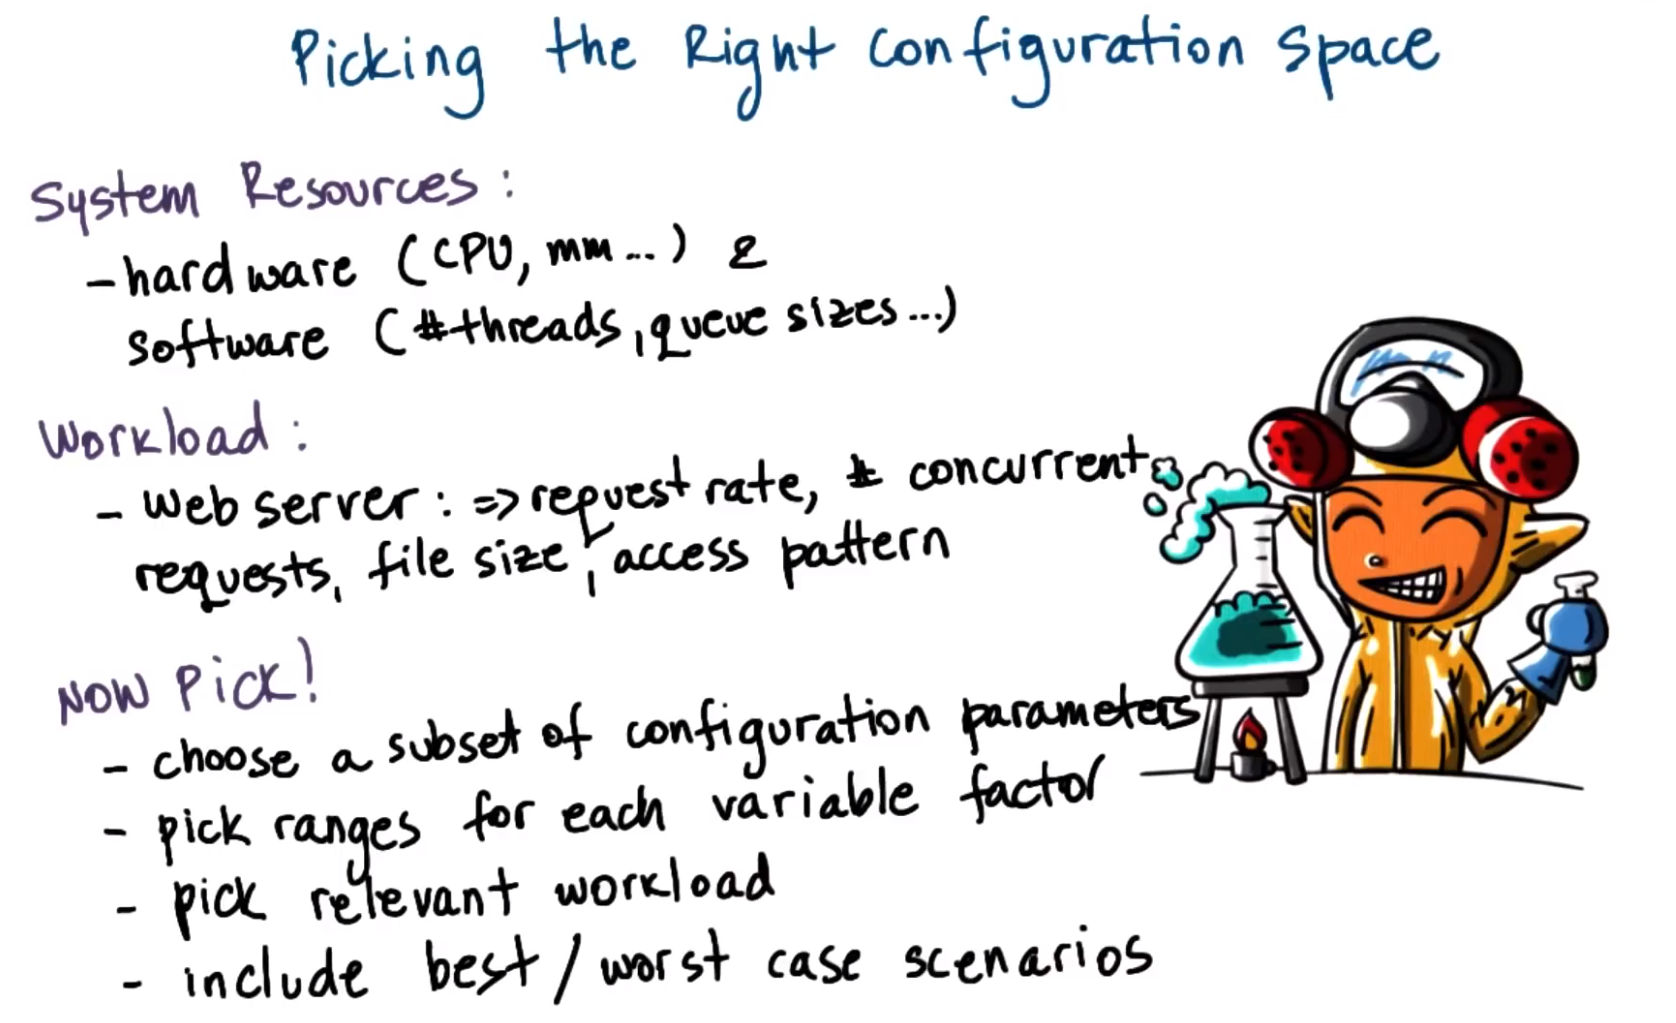 Picking the Right Configuration Space
System Resources:
- hardware (CPU, mm...) &
software (#threads, queue sizes...)
Workload:
- web server: => request rate, # concurrent
requests, file size, access pattern
NOW PICK!
- choose a subset of configuration parameters
- pick ranges for each variable factor
- pick relevant workload
- include best/worst case scenarios